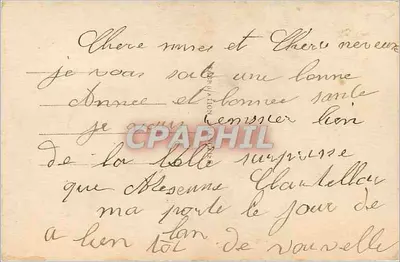 Chere nieces et Chere neveux
je vous soite une bonne
Année et bonne santé
je vous remercier bien
CPAPHIL
de la belle surprise
que
ma porte le jour de
lan
a bien tot de nouvelle